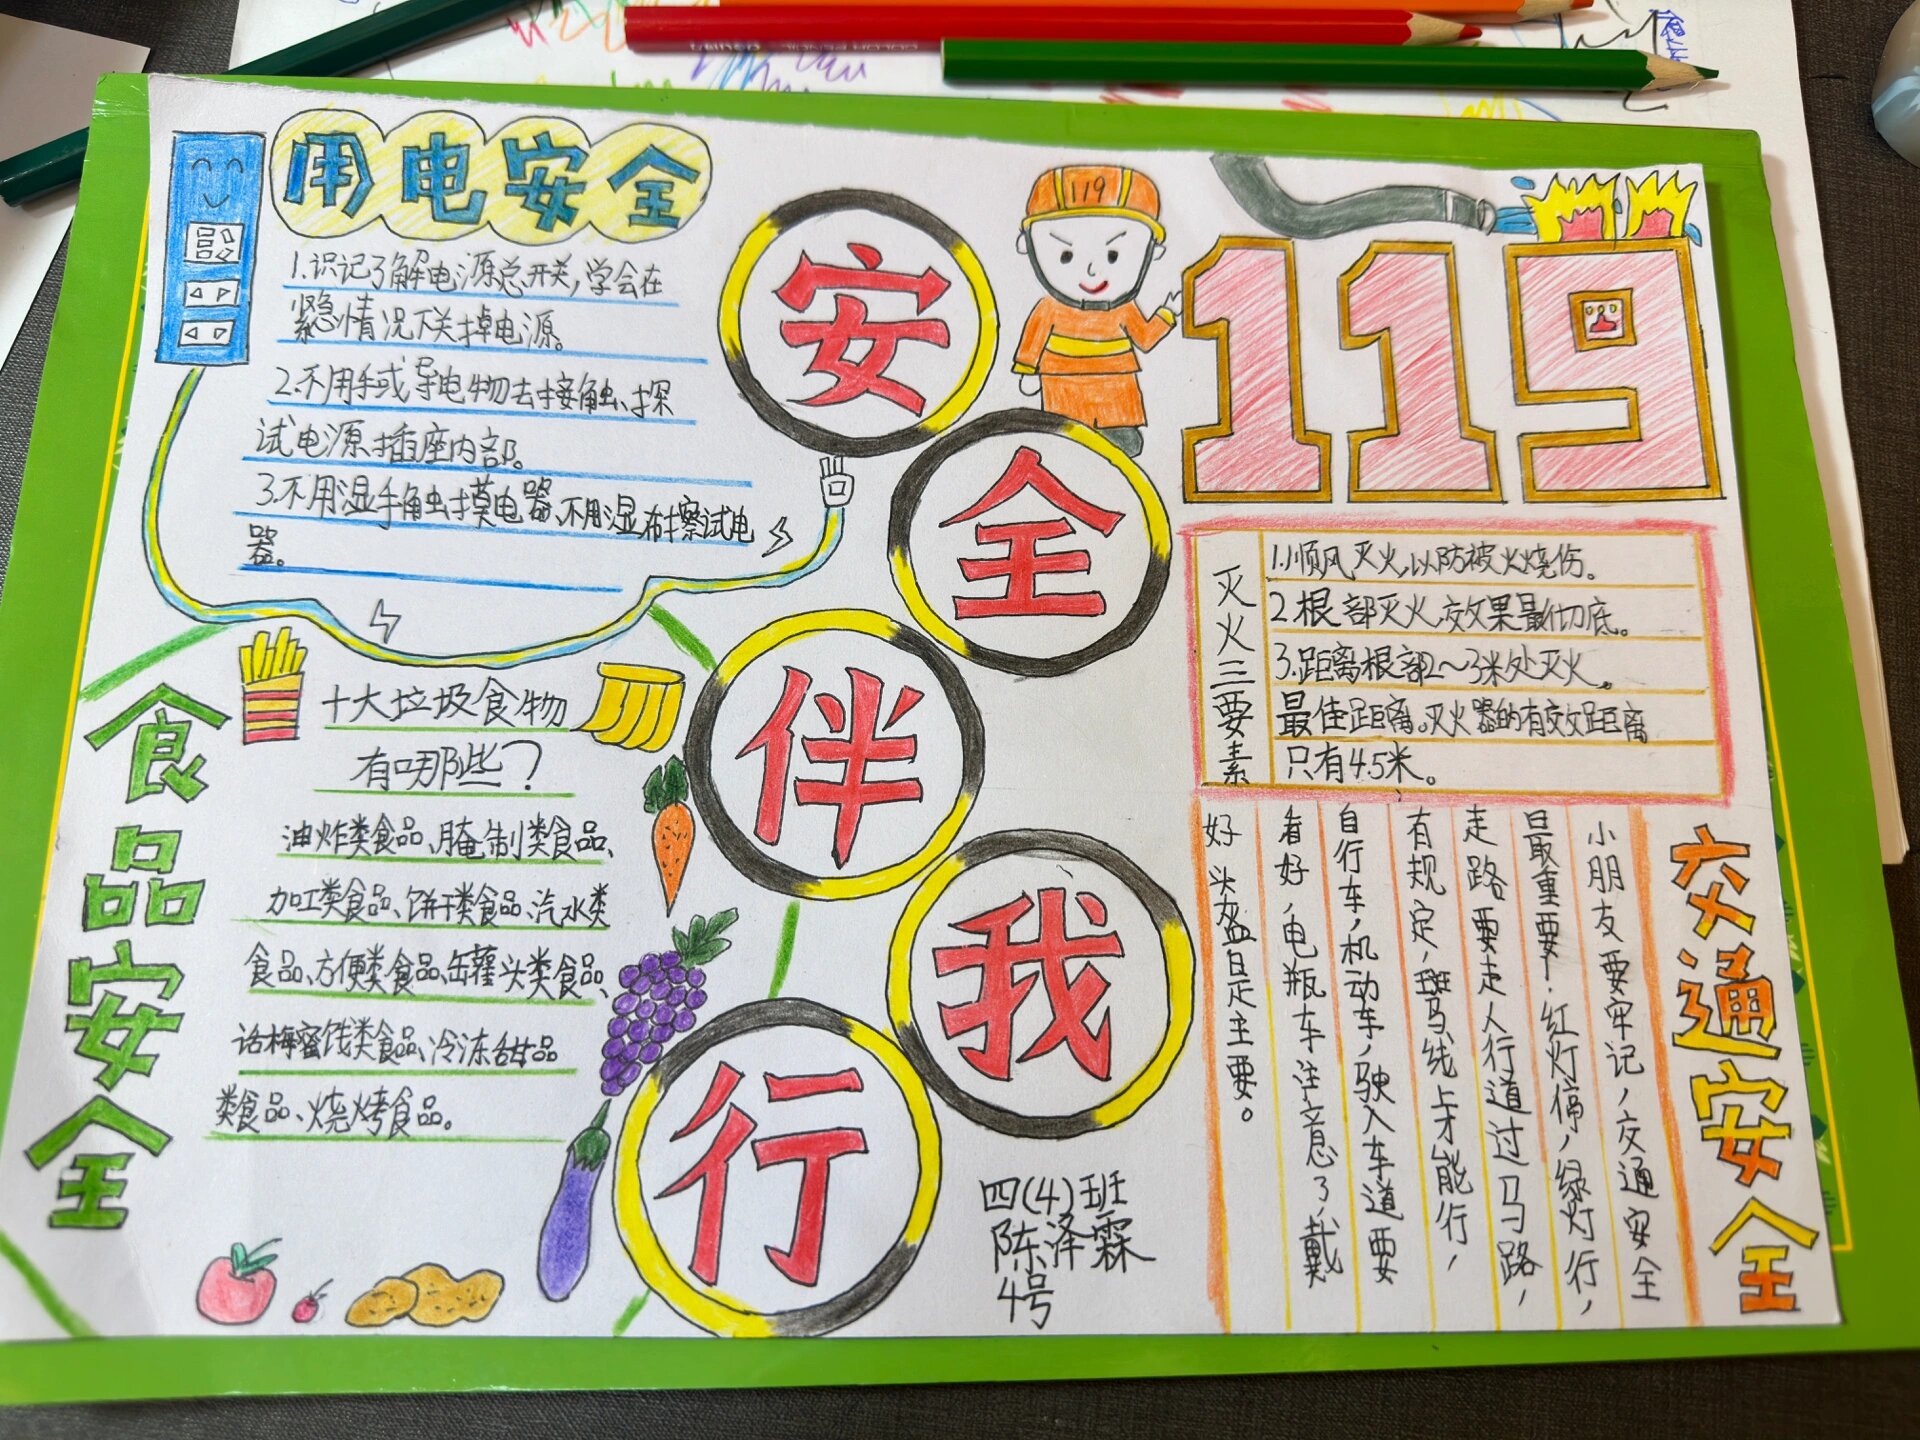 用电安全
1.识记了解电源总开关,学会在
紧急情况下关掉电源。
2.不用手或导电物去接触、探
试电源插座内部。
3.不用湿手触摸电器、不用湿布擦试电
器。
安全伴我行
119
119
灭火三要素
1.顺风灭火,以防被火烧伤。
2.根部灭火,效果最彻底。
3.距离根部2~3米处灭火。
最佳距离。灭火器的有效距离
只有4.5米。
食品安全
十大垃圾食物
有哪些?
油炸类食品、腌制类食品、
加工类食品、饼干类食品、汽水类
食品、方便类食品、罐头类食品、
话梅蜜饯类食品、冷冻甜品
类食品、烧烤食品。
交通安全
小朋友要牢记,交通安全
最重要!红灯停,绿灯行,
走路要走人行道过马路,
有规定,斑马线上才能行,
自行车,机动车,驶入车道要
看好,电瓶车注意了,戴
好头盔是主要。
四(4)班
陈泽霖
4号